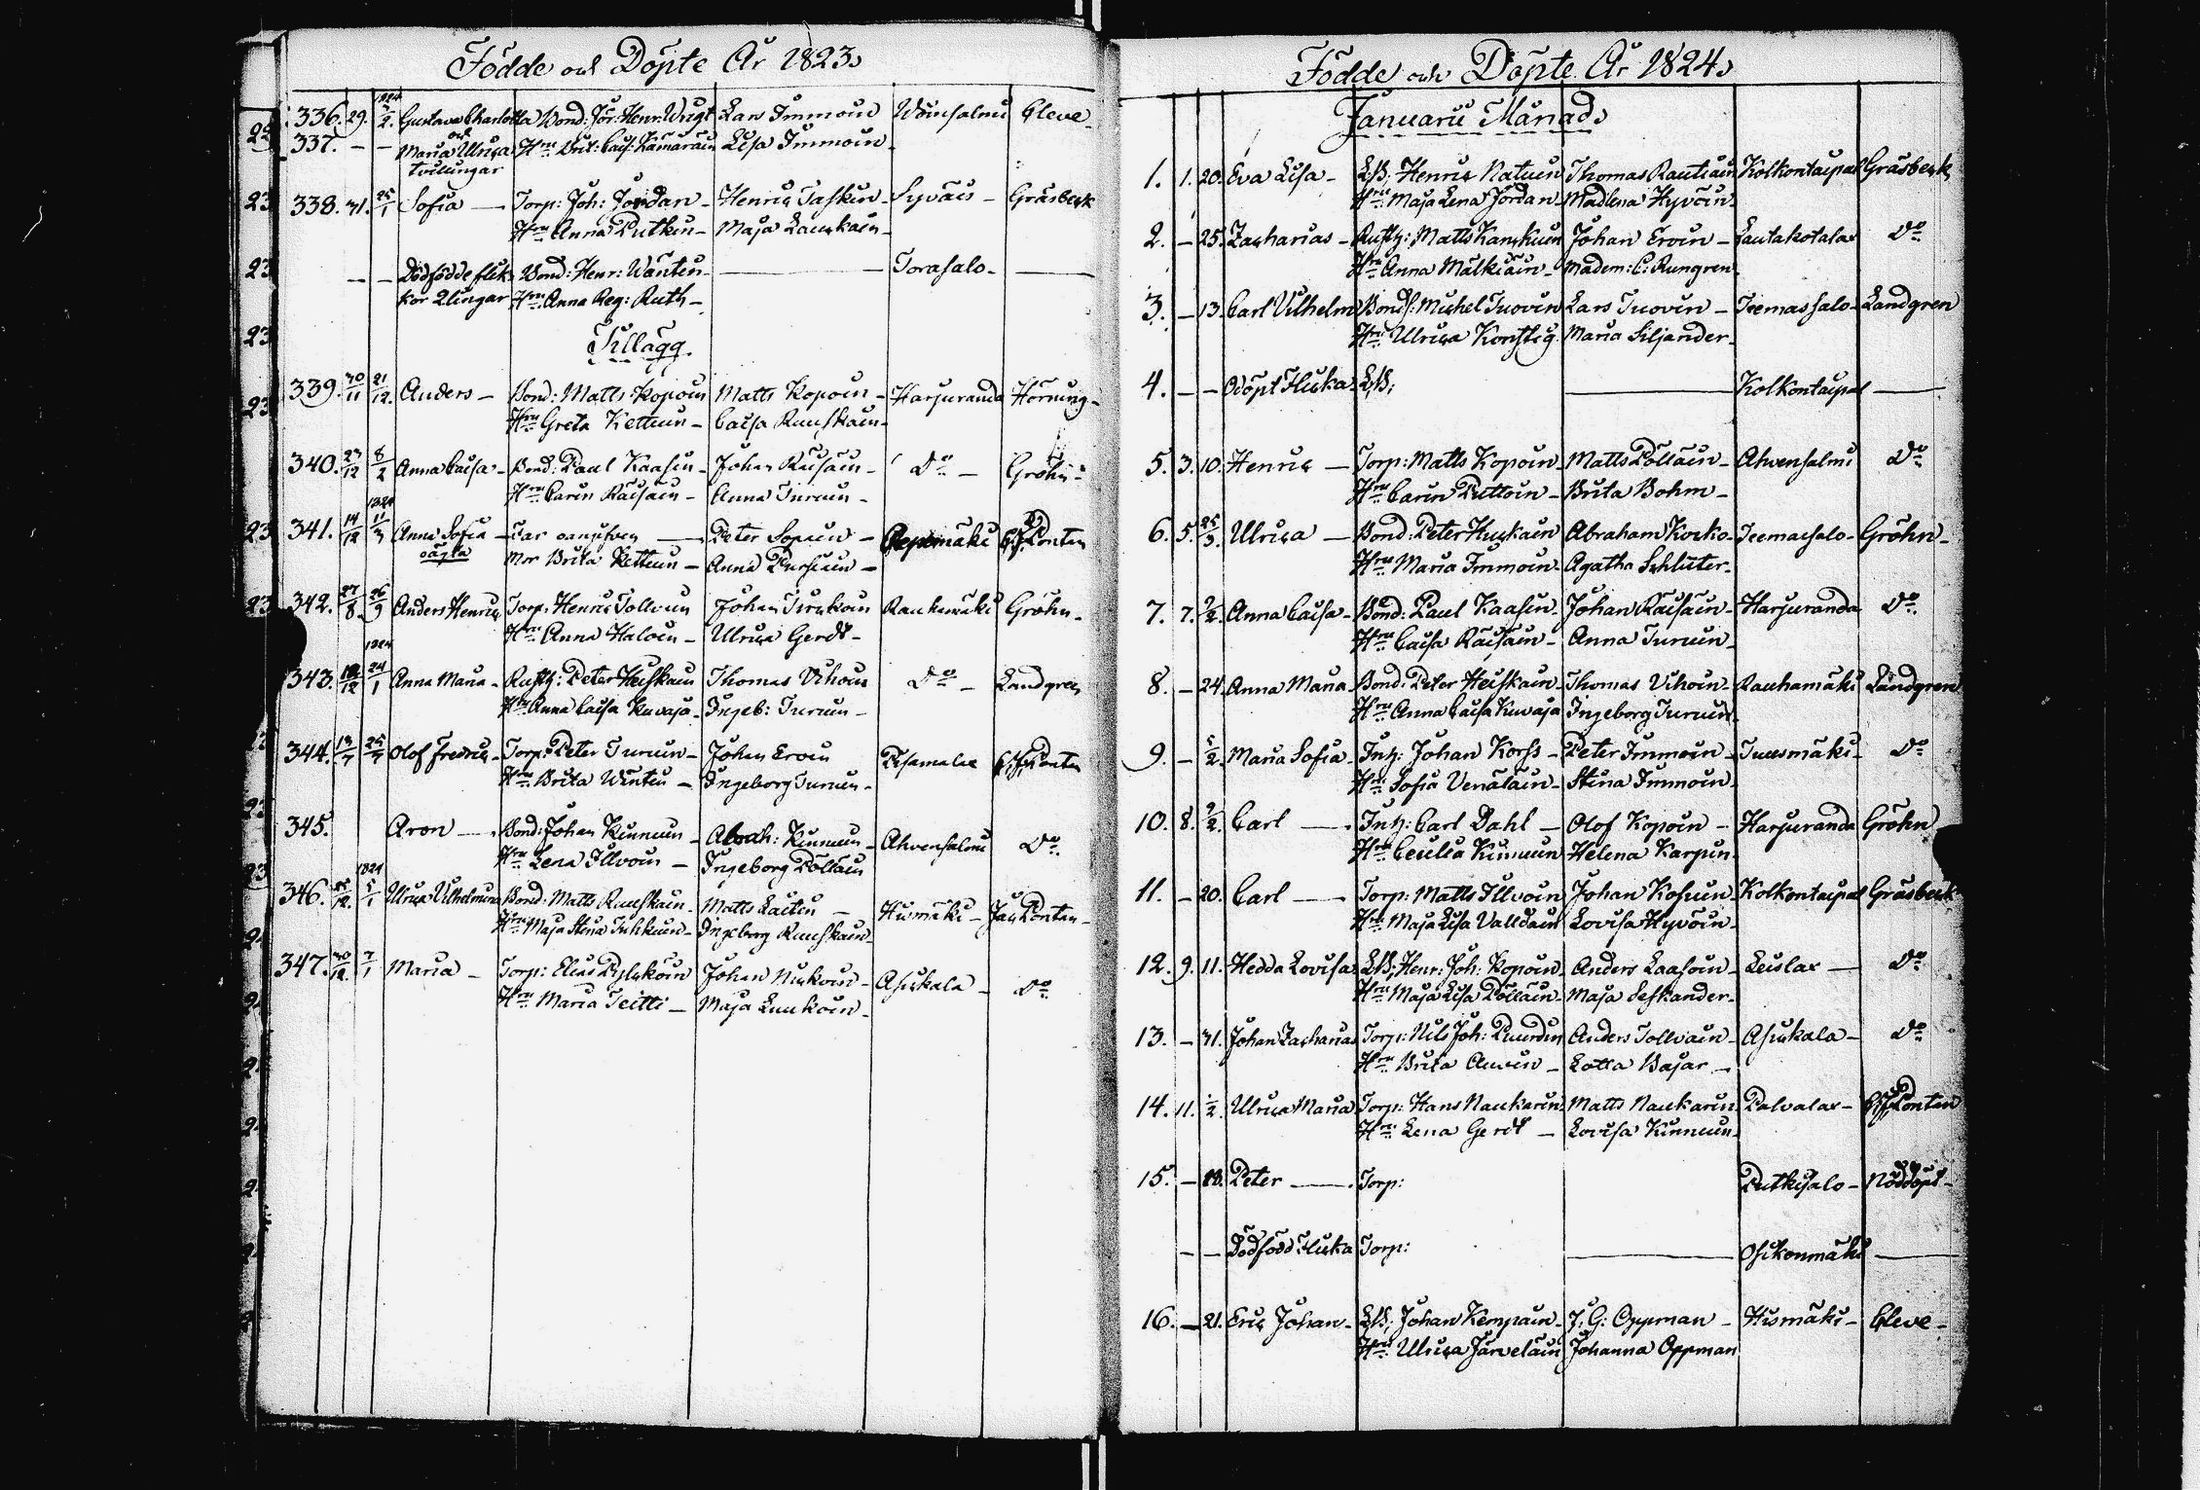 Födde och Döpte År 1823.
336. 29. 1824 2. Gustava Charlotta Bond: Jör: Henr: Wrigt Lars Immoin Woinsalmi Cleve
337. — — och Maria Ulrica Hru Brit: Caisa: Kämäräin Lisa Immoin
tvillingar
338. 31. 25/1 Sofia — Torp: Joh: Jordan — Henric Taskin — Syväis — Gräsbeck
Hru Anna Putkin — Maja Lauskain —
— — Dödfödde flik- Bond: Henr: Wänten — Torasalo —
kor 2lingar Hru Anna Reg: Ruth —
Tillägg.
339. 30/11 21/12 Anders — Bond: Matts Kopoin Matts Kopoin — Harjuranda Hornung —
Hru Greta Kettuin — Caisa Ruuskain —
340. 23/12 8/2 Anna Caisa — Bond: Paul Kaasin — Johan Räisäin — Do — Gröhn —
Hru Carin Räisäin — Anna Turuin —
1824
341. 14/12 11/3 Anna Sofia — Far oangifven — Peter Sopain — Pontin
oägta Mor Brita Kettuin — Anna Pursiain —
342. 27/8 26/9 Anders Henric Torp: Henric Tollvuin Johan Tirckoin Rauhamäki Gröhn —
Hru Anna Haloin — Ulrica Gerdt —
1824
343. 24/1 Anna Maria — Rusth: Peter Heiskain Thomas Vihoin Do — Landgren
Hru Anna Caisa Kuvaja — Ingeb: Turuin —
344. Olof Fredric — Torp: Peter Turuin — Johan Eroin Pontin
Hru Brita Wänten — Ingeborg Turuin —
345. Aron — Bond: Johan Kinnuin — Abrah: Kinnuin — Ahvensalmi Do
Hru Lena Illvoin — Ingeborg Pölläin
1824
346. 25/12 5/1 Ulrica Vilhelmina Bond: Matts Ruuskain — Matts Laitin — Hismäki — Jac: Pontan —
Hru Maja Stina Tuhkuin — Ingeborg Ruuskain —
347. 30/12 7/1 Maria — Torp: Elias Pylcköin Johan Mickoin — Asickala — Do
Hru Maria Teitti — Maja Luukoin —
Födde och Döpte År 1824.
Januarii Månad.
1. 1. 20. Eva Lisa — Lsb: Henric Natuin Thomas Rautiain Kolkontaipal Gräsbeck
Hru Maja Lena Jordan — Madlena Hyvöin
2. — 25. Zacharias — Rusth: Matts Kanskuin Johan Eroin — Lautakotalax Do
Hru Anna Mälkiäin — Madem: C: Rungren —
3. — 13. Carl Vilhelm Bonds: Michel Tuovin Lars Tuovin — Teemassalo — Landgren
Hru Ulrica Konstig Maria Siljander —
4. — — Odöpt Flicka Lsb: — Kolkontaipal —
5. 3. 10. Henric — Torp: Matts Kopoin — Matts Pölläin — Ahvensalmi Do
Hru Carin Puttoin — Brita Bohm —
6. 5. 25/3 Ulrica — Bond: Peter Huckain Abraham Korko — Teemassalo — Gröhn —
Hru Maria Immoin — Agatha Schlüter —
7. 7. 2/2 Anna Caisa — Bond: Paul Kaasin — Johan Räisäin — Harjuranda Do
Hru Caisa Räisäin — Anna Turuin —
8. — 24. Anna Maria Bond: Peter Heiskain — Thomas Vihoin — Rauhamäki Landgren
Hru Anna Caisa Kuvaja Ingeborg Turuin —
9. — Maria Sofia — Inh: Johan Korss — Peter Immoin — Do
Hru Sofia Venäläin — Stina Immoin
10. 8. Carl — Inh: Carl Dahl — Olof Kopoin — Harjuranda Gröhn
Hru Cecilia Kinnuin Helena Karpin
11. — 20. Carl — Torp: Matts Illvoin Johan Kosuin — Kolkontaipal Gräsbeck
Hru Maja Lisa Valldäin Lovisa Hyvöin —
12. 9. 11. Hedda Lovisa Lsb: Henr: Joh: Kopoin — Anders Laasoin — Leislax — Do
Hru Maja Lisa Pölläin — Maja Sefkander —
13. — 31. Johan Zacharias Torp: Nils Joh: Puurdin Anders Tollväin — Asickala — Do
Hru Brita Auvin — Lotta Bajar —
14. 11. 1/2 Ulrica Maria Torp: Hans Naukarin Matts Naukarin Palvalax — Pontin
Hru Lena Gerdt — Lovisa Kinnuin —
15. — Peter — Torp: Putkisalo — Nöddöpt —
— — Dödfödd Flicka Torp: — Osikonmäki —
16. — 21. Eric Johan — Lsb: Johan Kempain — J. G: Oppman — Hismäki — Cleve —
Hru Ulrica Järveläin Johanna Oppman